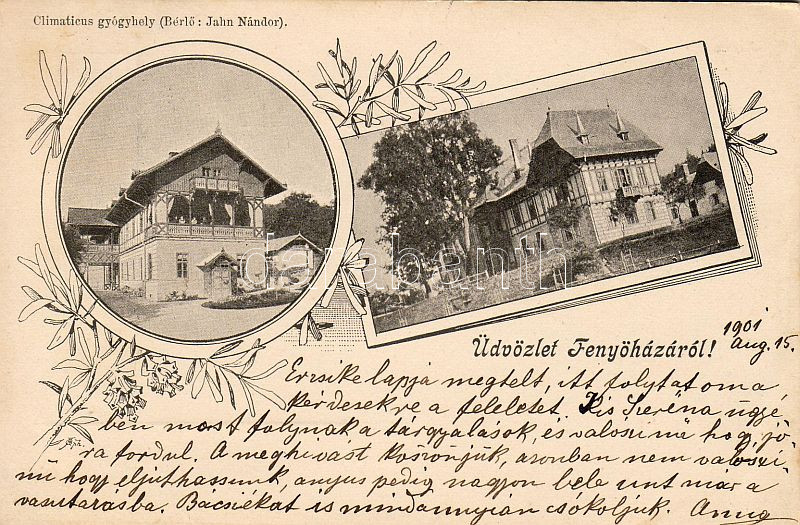 Climaticus gyógyhely (Bérlő: Jahn Nándor).
darabanth
Üdvözlet Fenyőházáról!
1901
Aug. 15.
Erzsike lapja megtelt, itt folytatom a
kérdésekre a feleletet. Kis Szeréna ügyé-
ben most folynak a tárgyalások, és valószinű hogy jó-
ra fordul. A meghívást köszönjük, azonban nem valószi-
nű hogy eljuthassunk, anyus pedig nagyon bele unt már a
vasutazásba. Bácsiékat is mindannyian csókoljuk. Anna